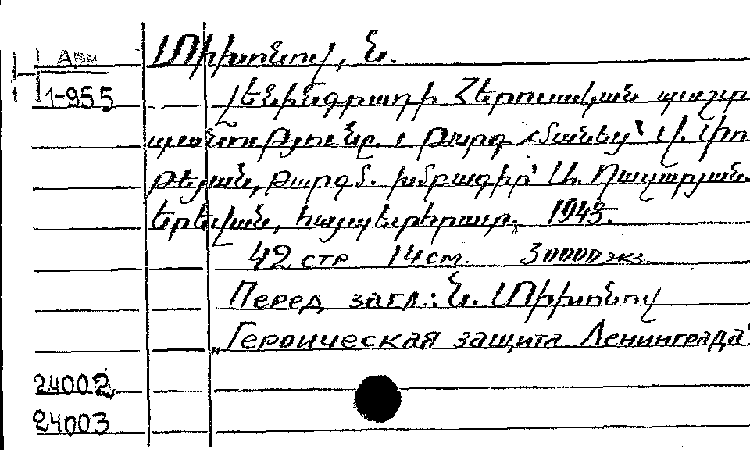 Арм
1-955
Տիխոնով, Ն.
Լենինգրադի հերոսական պաշտ
պանությունը. Թարգմանեց՝ Վ. Փո
թեյան, Թարգմ. խմբագիր՝ Ա.
Երևան, Հայպետհրատ, 1943.
42 стр 14 см. 30000 экз.
Перед загл.: Ն. Տիխոնով
„Героическая защита Ленинграда"
24002
24003